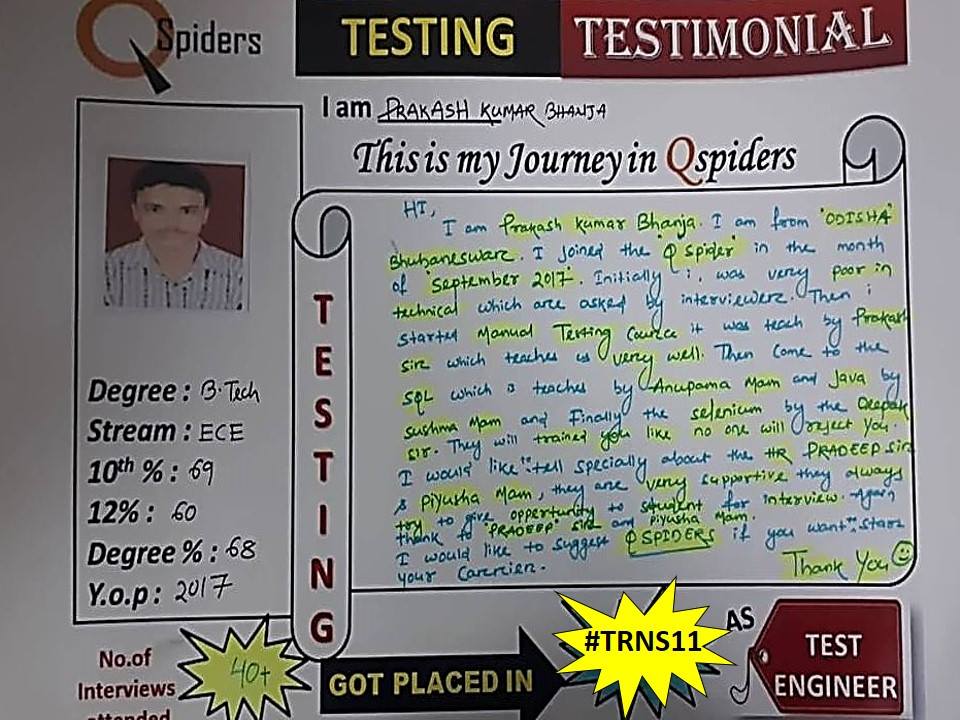 QSpiders
TESTING TESTIMONIAL
I am PRAKASH KUMAR BHANJA
This is my Journey in Qspiders
HI,
I am Prakash Kumar Bhanja. I am from 'ODISHA'
Bhubaneswar. I joined the 'Q Spider' in the month
of 'September 2017'. Initially i was very poor in
technical which are asked by interviewer. Then i
started Manual Testing Cource it was teach by Prakash
sir which teaches us very well. Then come to the
SQL which is teaches by Anupama Mam and Java by
Sushma Mam and Finally the selenium by the Deepak
sir. They will trained you like no one will reject you.
I would like to tell specially about the HR PRADEEP sir
& Piyusha Mam, they are very supportive they always
try to give opportunity to student for interview. Again
thank to 'PRADEEP' sir and Piyusha Mam.
I would like to suggest QSPIDERS if you want to start
your Carerier.
Thank You
TESTING
Degree : B.Tech
Stream : ECE
10th % : 69
12% : 60
Degree % : 68
Y.o.p : 2017
No.of
Interviews
attended
40+
GOT PLACED IN
#TRNS11
AS
TEST
ENGINEER